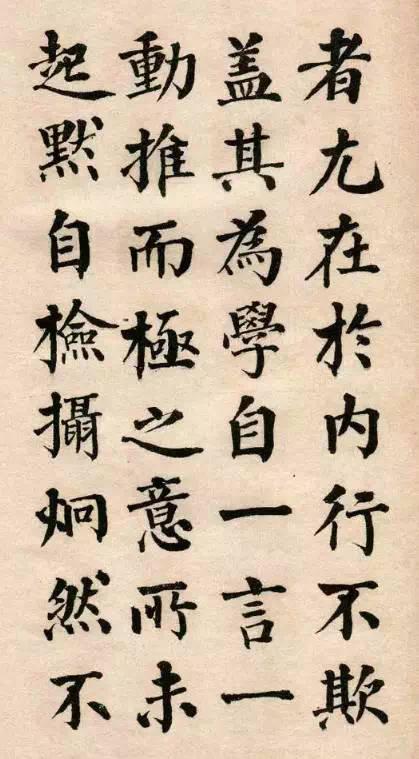 者尤在於内行不欺
蓋其為學自一言一
動推而極之意所未
起默自檢攝炯然不